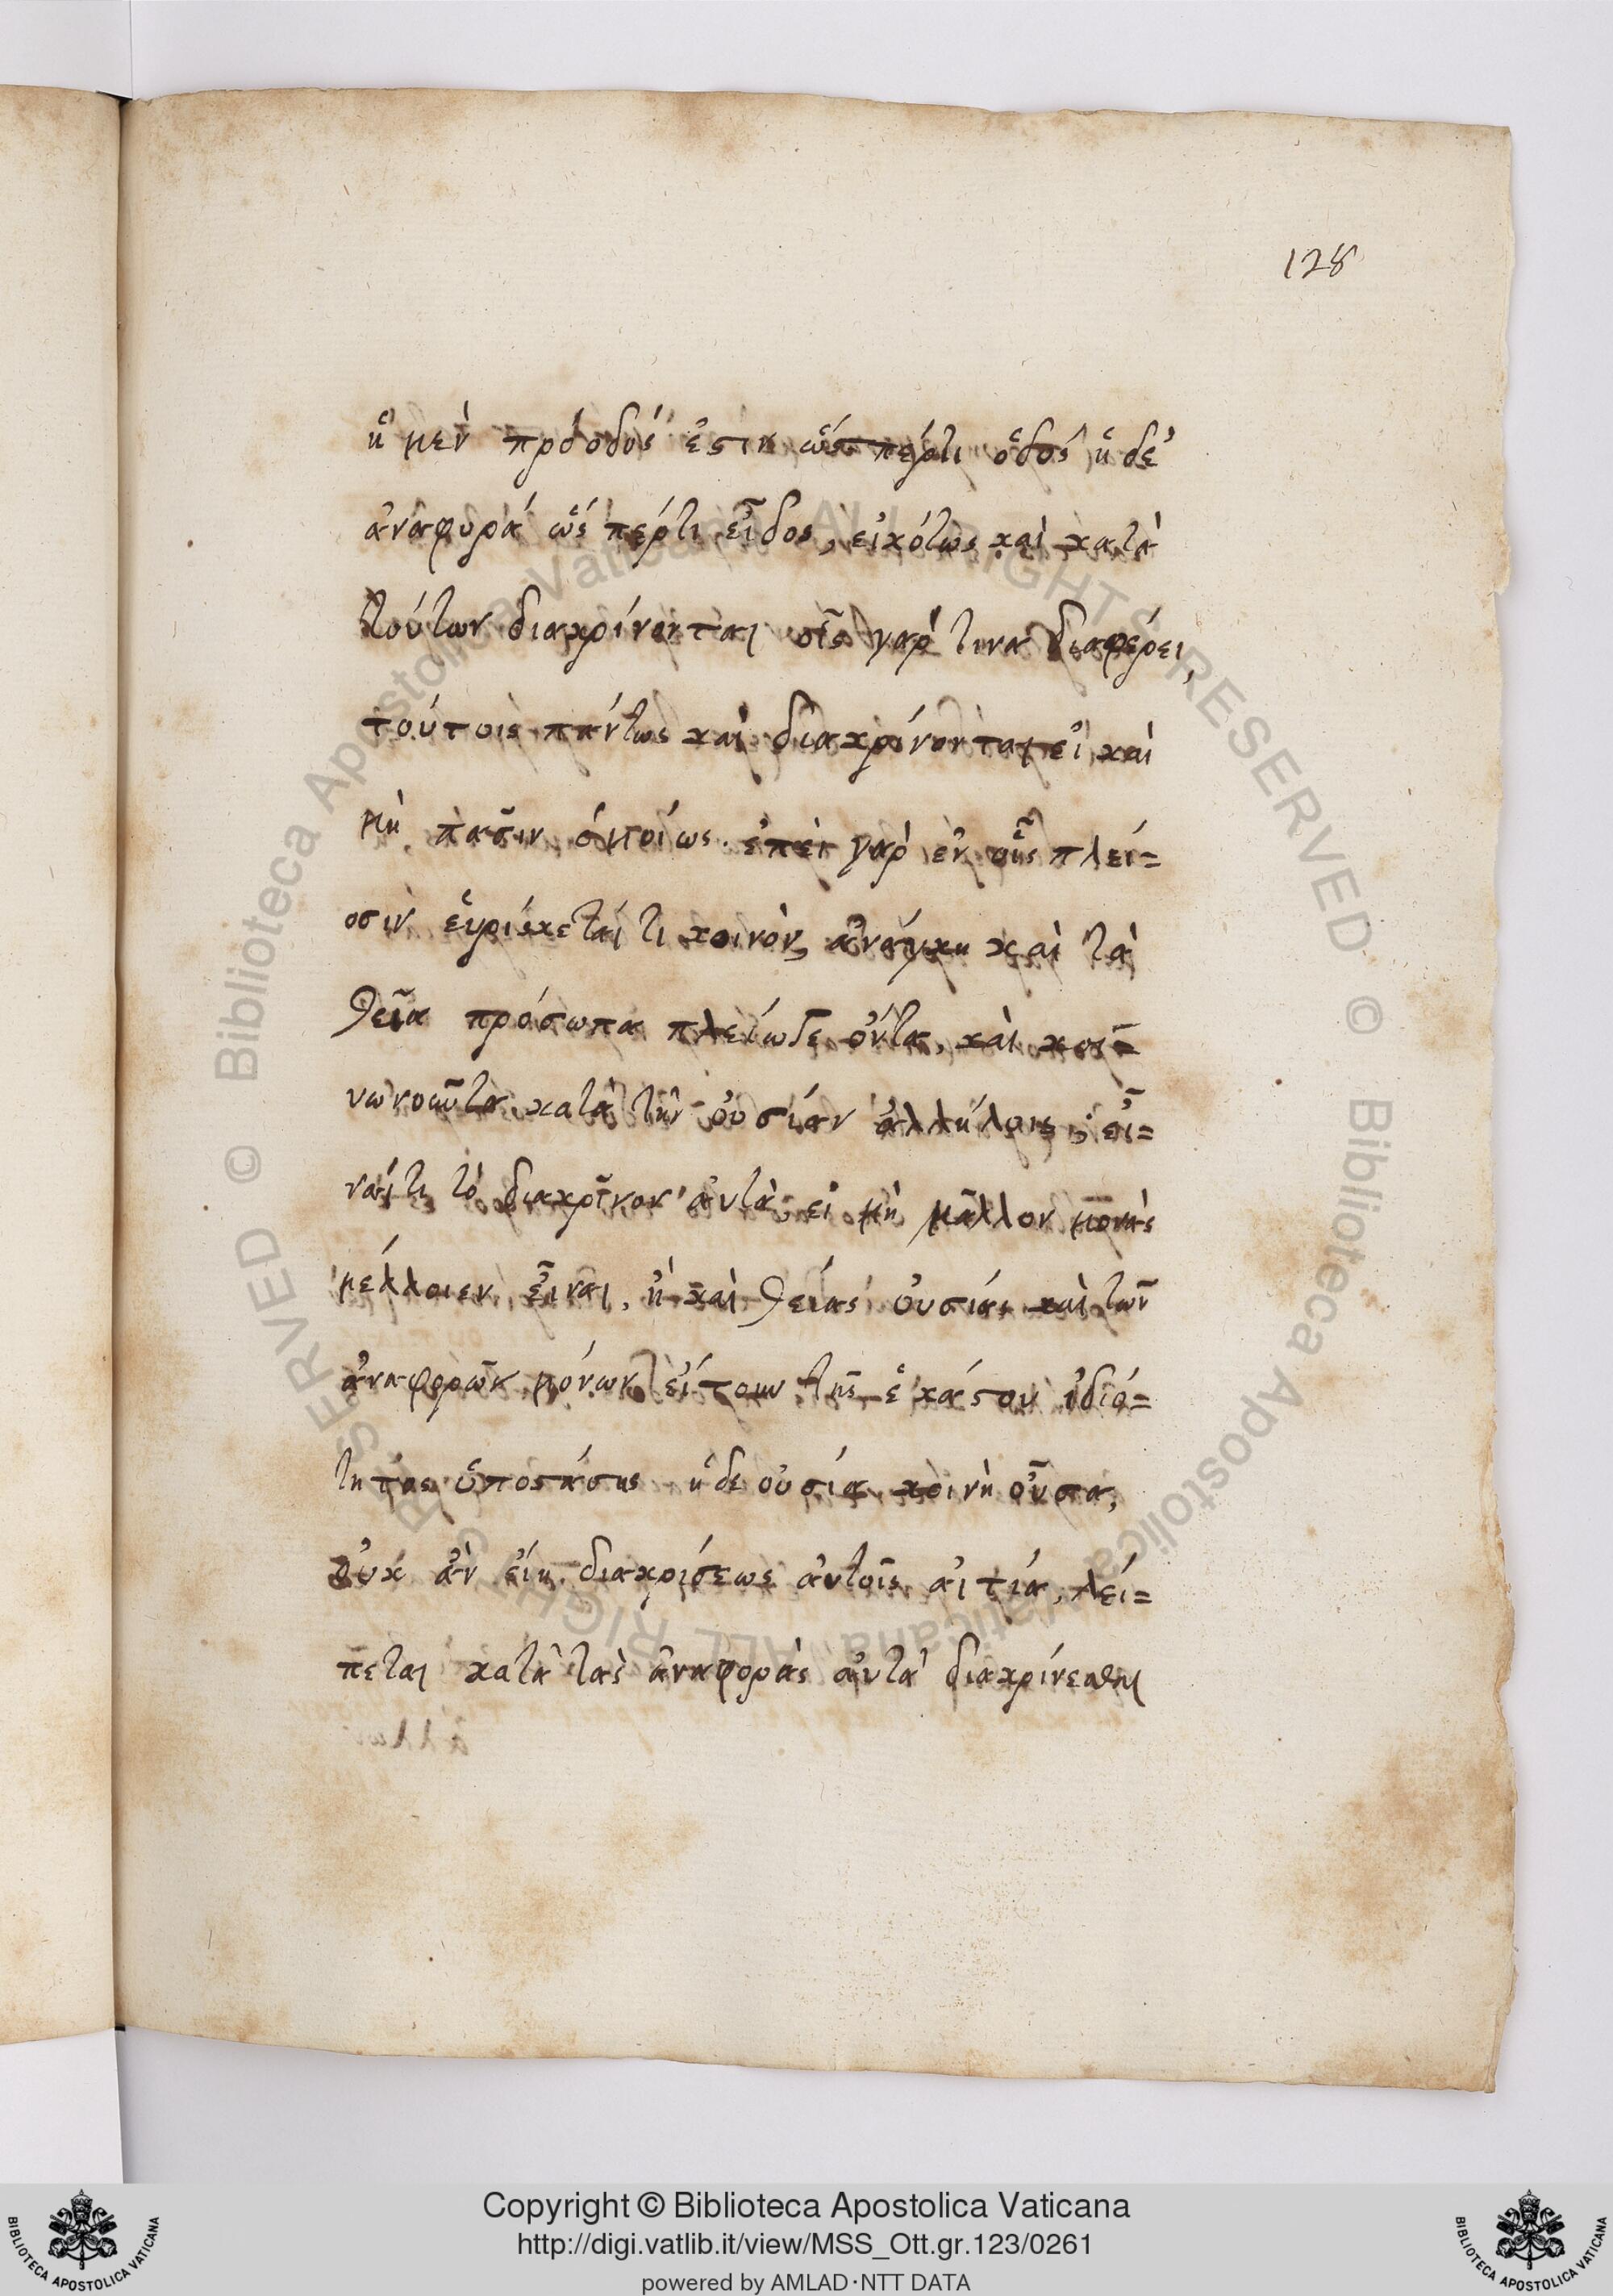 128
ἡ μὲν πρόοδός ἐστιν ὥς περ τι ὁδός ἡ δὲ
ἀναφορά ὥς περ τι εἶδος, εἰκότως καὶ κατὰ
τούτων διακρίνονται οἷς γάρ τινα διαφέρει,
τούτοις πάντως καὶ διακρίνονται εἰ καὶ
μὴ πᾶσιν ὁμοίως. ἐπεὶ γὰρ ἐν οἷς πλεί=
οσιν εὑρίσκεταί τι κοινὸν, ἀνάγκη καὶ τὰ
θεῖα πρόσωπα πλείω δε ὄντα, καὶ κοι=
νωνοῦντα κατὰ τὴν οὐσίαν ἀλλήλοις, εἶ=
ναί τι τὸ διακρῖνον αὐτὰ, εἰ μὴ μᾶλλον μονὰς
μέλλοιεν εἶναι, ἢ καὶ θείας οὐσίας καὶ τῶν
ἀναφορῶν μόνων εἴτουν τῆς ἑκάστου ἰδιό=
τητος ὑποστάσης ἡ δε οὐσία κοινὴ οὖσα,
οὐκ ἂν εἴη διακρίσεως αὐτοῖς αἰτία, λεί=
πεται κατὰ τὰς ἀναφορὰς αὐτὰ διακρίνεσθαι
Copyright © Biblioteca Apostolica Vaticana
http://digi.vatlib.it/view/MSS_Ott.gr.123/0261
powered by AMLAD·NTT DATA